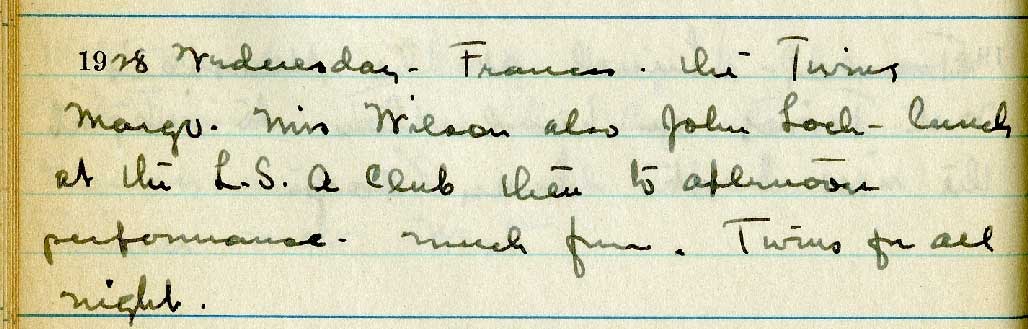 1928 Wednesday - Frances. the Twins
Margo. Miss Wilson also John Loch - lunch
at the L.S. A Club then to afternoon
performance - much fun. Twins for all
night.